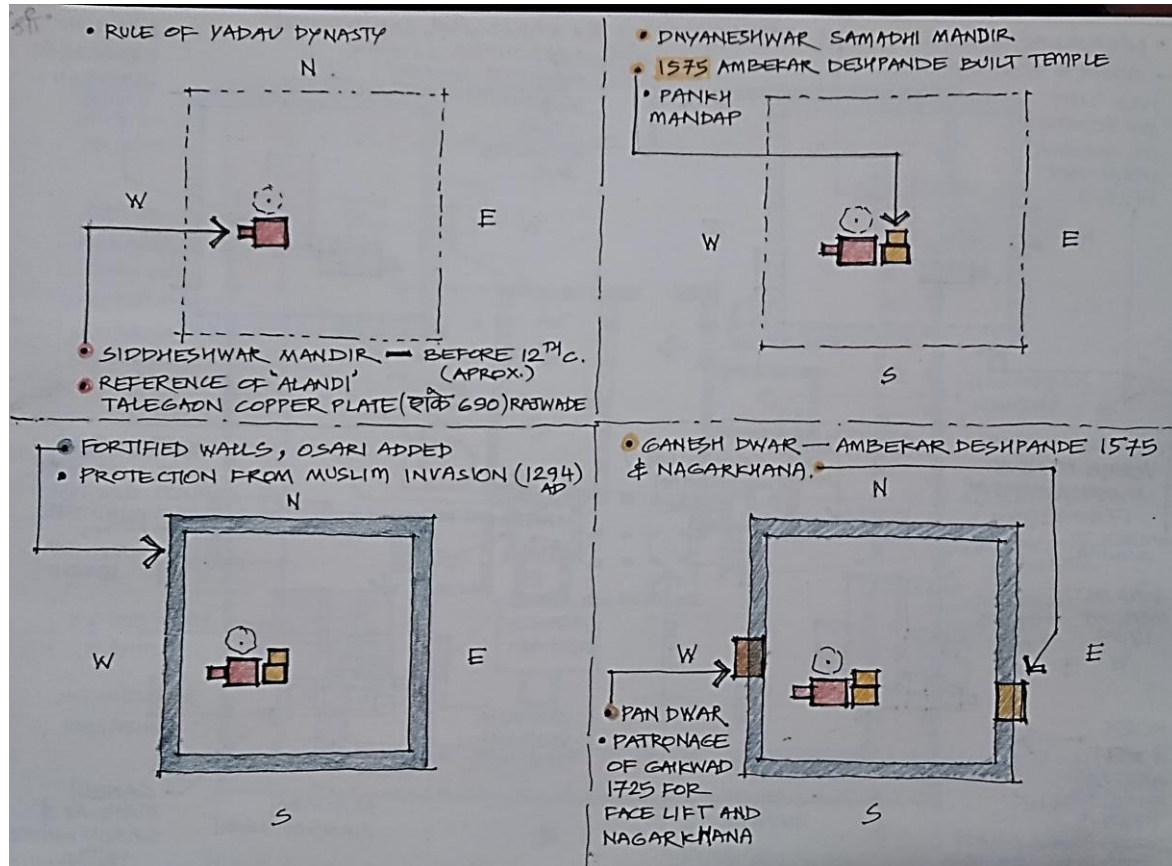 • RULE OF YADAV DYNASTY
N
W
E
• SIDDHESHWAR MANDIR — BEFORE 12TH C.
(APROX.)
• REFERENCE OF 'ALANDI'
TALEGAON COPPER PLATE (शके 690) RAJWADE
• DNYANESHWAR SAMADHI MANDIR
• 1575 AMBEKAR DESHPANDE BUILT TEMPLE
• PANKH
MANDAP
W
E
S
• FORTIFIED WALLS, OSARI ADDED
• PROTECTION FROM MUSLIM INVASION (1294)
AD
N
W
E
S
• GANESH DWAR — AMBEKAR DESHPANDE 1575
& NAGARKHANA.
N
W
E
• PAN DWAR
• PATRONAGE
OF GAIKWAD
1725 FOR
FACE LIFT AND
NAGARKHANA
S